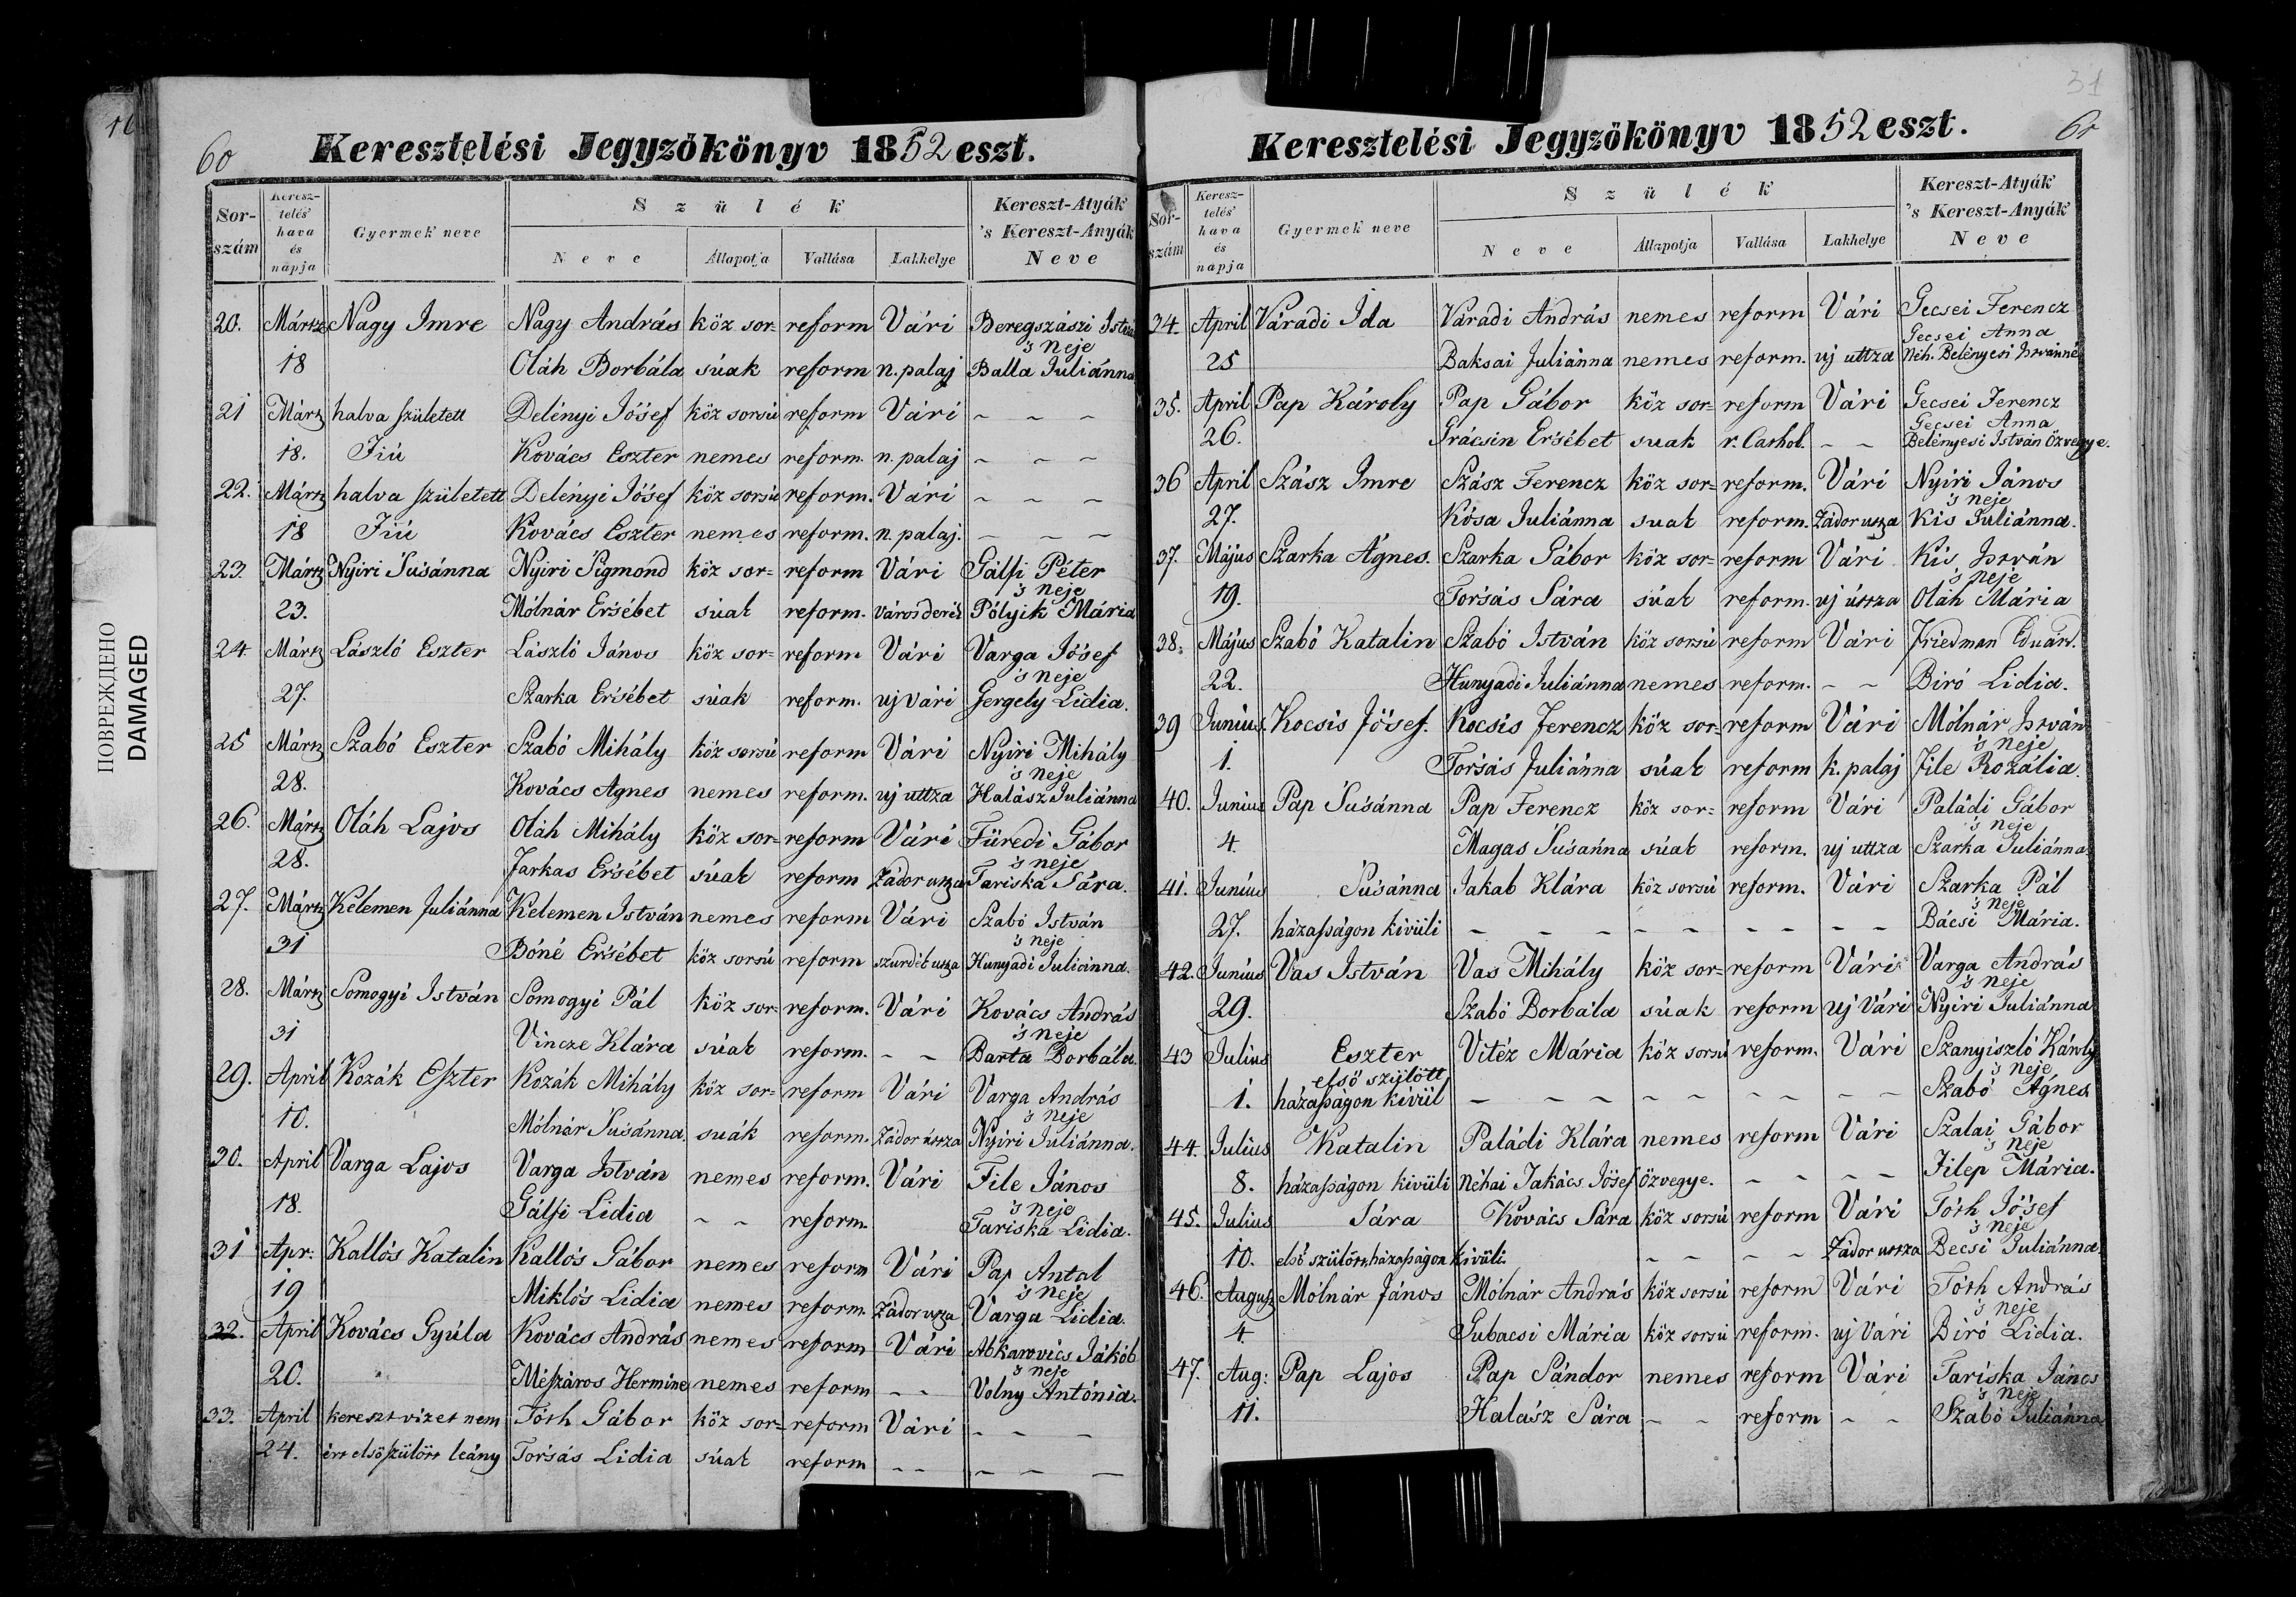 16
60
Keresztelési Jegyzőkönyv 1852 eszt.
Sor-szám
Keresz-telés' hava és napja
Gyermek' neve
Szülék
Neve
Állapotja
Vallása
Lakhelye
Kereszt-Atyák 's Kereszt-Anyák Neve
20. Martz Nagy Imre Nagy András köz sor= reform Vári Beregszászi
's Neje
18 Oláh Borbála súak reform n. palaj Balla Juliánna
21 Martz halva született Delényi Jósef köz sorsú reform Vári - - -
18. Fiú Kovács Eszter nemes reform. n. palaj - - -
22. Martz halva született Delényi Jósef köz sorsú reform. Vári - - -
18 Fiú Kovács Eszter nemes reform. n. palaj. - - -
23. Martz Nyiri Susánna Nyiri Sigmond köz sor= reform Vári Gálfi Péter
's Neje
23. Mólnár Ersébet súak reform. Pólyik Mária
24. Martz László Eszter László János köz sor= reform Vári Varga Jósef
's Neje
27. Szarka Ersébet súak reform. uj Vári Gergely Lidia.
25 Martz Szabó Eszter Szabó Mihály köz sorsú reform Vári Nyiri Mihály
's Neje
28. Kovács Agnes nemes reform. uj uttza Halász Juliánna
26. Martz Oláh Lajos Oláh Mihály köz sor= reform Vári Füredi Gábor
's Neje
28. Farkas Ersébet súak reform Zádor utza Tariska Sára.
27. Martz Kelemen Juliánna Kelemen István nemes reform Vári Szabó István
's Neje
31 Bóné Ersébet köz sorsú reform szurdik utza Hunyadi Juliánna.
28. Martz Somogyi István Somogyi Pál köz sor= reform. Vári Kovács András
's Neje
31 Vincze Klára súak reform. - - Barta Borbála.
29. April Kozák Eszter Kozák Mihály köz sor= reform Vári Varga András
's Neje
10. Mólnár Susánna. suák reform. Zádor uttza Nyiri Juliánna.
30. April Varga Lajos Varga István nemes reform. Vári File János
's Neje
18. Gálfi Lidia - - reform. Tariska Lidia.
31 Apr: Kallós Katalin Kallós Gábor nemes reform Vári Pap Antal
's Neje
19 Miklós Lidia nemes reform. Zádor utza Varga Lidia.
32. April Kovács Gyúla Kovács András nemes reform Vári Abkarovics Jákób
's neje
20. Mészáros Hermine nemes reform - - Volny Antónia.
33. April kereszt vizet nem Tóth Gábor köz sor= reform Vári - - -
24. ért első szülött leány Torsás Lidia súak reform - - - - -
31
61
Keresztelési Jegyzőkönyv 1852 eszt.
Sor-szám
Keresz-telés' hava és napja
Gyermek' neve
Szülék
Neve
Állapotja
Vallása
Lakhelye
Kereszt-Atyák 's Kereszt-Anyák Neve
34. April Váradi Ida Váradi András nemes reform Vári Gecsei Ferencz
Gecsei Anna
25 Baksai Juliánna nemes reform. uj uttza Néh. Belényesi Istvánné
35. April Pap Károly Pap Gábor köz sor= reform Vári Gecsei Ferencz
Gecsei Anna
26. Grácsin Ersébet suak r. Cathol. - - Belényesi István Özvegye.
36 April Szász Imre Szász Ferencz köz sor= reform. Vári Nyiri János
's neje
27. Kósa Juliánna suak reform. Zádor utza Kis Juliánna.
37. Május Szarka Ágnes. Szarka Gábor köz sor= reform Vári Kis István
's neje
19. Torsás Sára súak reform. uj úttza Oláh Mária
38. Május Szabó Katalin Szabó István köz sorsú reform Vári Friedman Eduárd.
22. Hunyadi Juliánna nemes reform. - - Biró Lidia.
39 Junius Kocsis Jósef. Kocsis Ferencz köz sor= reform Vári Mólnár István
's Neje
1. Torsás Juliánna súak reform k. palaj File Rozália.
40. Junius Pap Susánna Pap Ferencz köz sor= reform Vári Paládi Gábor
's neje
4. Magas Susánna súak reform. uj uttza Szarka Juliánna.
41. Junius Susánna Jakab Klára köz sorsú reform. Vári Szarka Pál
's Neje
27. házasságon kivüli - - - - - - - - - Bácsi Mária.
42. Junius Vas István Vas Mihály köz sor= reform Vári Varga András
's Neje
29. Szabó Borbála súak reform uj Vári Nyiri Juliánna
43 Julius Eszter Vitéz Mária köz sorsú reform. Vári Szanyiszló Károly
első szülött 's Neje
1. házasságon kivül - - - - - - - - - Szabó Ágnes
44. Julius Katalin Paládi Klára nemes reform Vári Szalai Gábor
's Neje
8. házasságon kivüli Néhai Takács Jósef özvegye. - - - - Filep Mária.
45. Julius Sára Kovács Sára köz sorsú reform Vári Tóth Jósef
's Neje
10. első szülött, házasságon kivüli. - - - - Zádor uttza Becsi Juliánna.
46. August Mólnár János Mólnár András köz sorsú reform Vári Tóth András
's Neje
4 Gubacsi Mária köz sorsú reform. uj Vári Biró Lidia.
47. Aug: Pap Lajos Pap Sándor nemes reform Vári Tariska János
's Neje
11. Halász Sára - - reform - - Szabó Juliánna
ПОВРЕЖДЕНО
DAMAGED